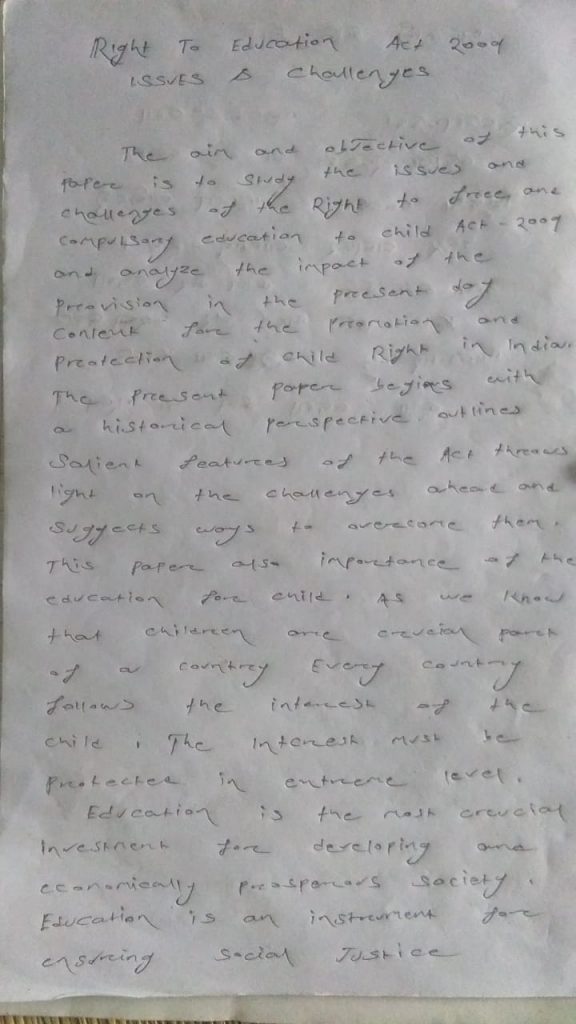 Right To Education Act 2009
ISSUES & Challenges
The aim and objective of this
paper is to study the issues and
challenges of the Right to free and
compulsory education to child Act - 2009
and analyze the impact of the
provision in the present day
context for the promotion and
protection of child Right in India.
The present paper begins with
a historical perspective outlines
Salient features of the Act throws
light on the challenges ahead and
suggects ways to overcome them.
This paper also importance of the
education for child. As we know
that children are crucial part
of a country Every country
follows the interest of the
child. The Interest must be
protected in extreme level.
Education is the most crucial
Investment for developing and
economically prosperous society.
Education is an instrument for
ensuring Social Justice